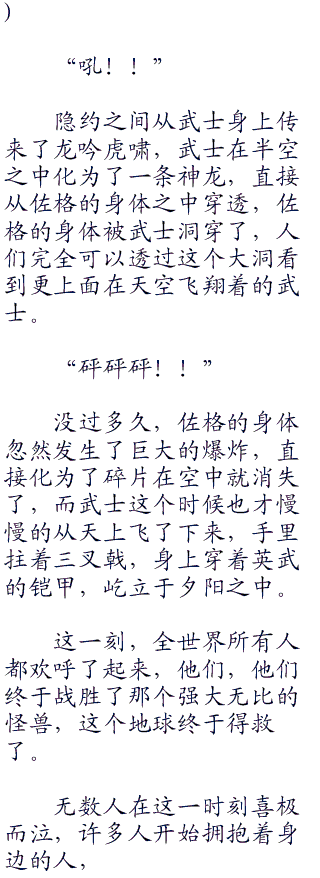 )
“吼！！”
隐约之间从武士身上传
来了龙吟虎啸，武士在半空
之中化为了一条神龙，直接
从佐格的身体之中穿透，佐
格的身体被武士洞穿了，人
们完全可以透过这个大洞看
到更上面在天空飞翔着的武
士。
“砰砰砰！！”
没过多久，佐格的身体
忽然发生了巨大的爆炸，直
接化为了碎片在空中就消失
了，而武士这个时候也才慢
慢的从天上飞了下来，手里
拄着三叉戟，身上穿着英武
的铠甲，屹立于夕阳之中。
这一刻，全世界所有人
都欢呼了起来，他们，他们
终于战胜了那个强大无比的
怪兽，这个地球终于得救
了。
无数人在这一时刻喜极
而泣，许多人开始拥抱着身
边的人，